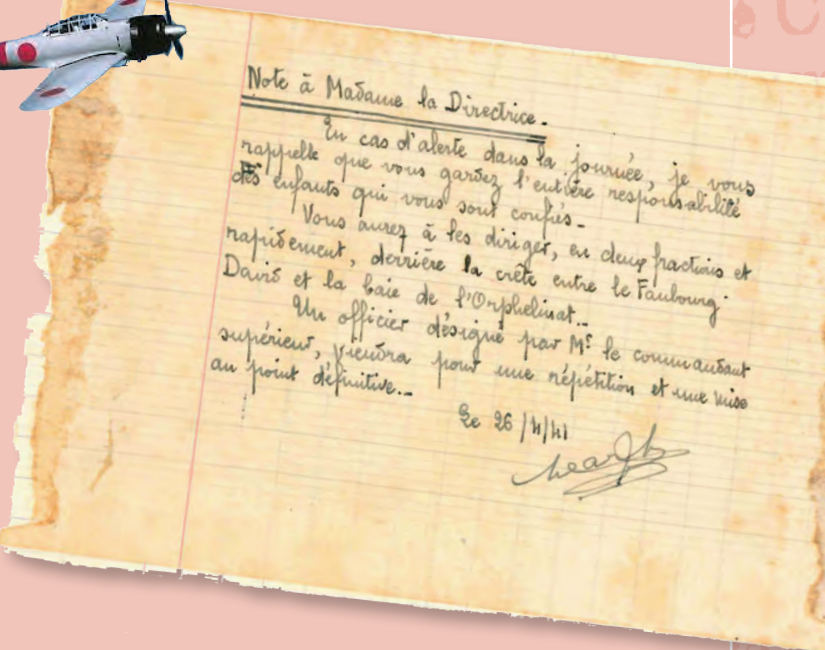 Note à Madame la Directrice.
En cas d'alerte dans la journée, je vous
rappelle que vous gardez l'entière responsabilité
des enfants qui vous sont confiés.
Vous aurez à les diriger, en deux fractions et
rapidement, derrière la crête entre le Faubourg
David et la baie de l'Orphelinat.
Un officier désigné par Mr le commandant
supérieur, viendra pour une répétition et une mise
au point définitive.
Le 26/4/41